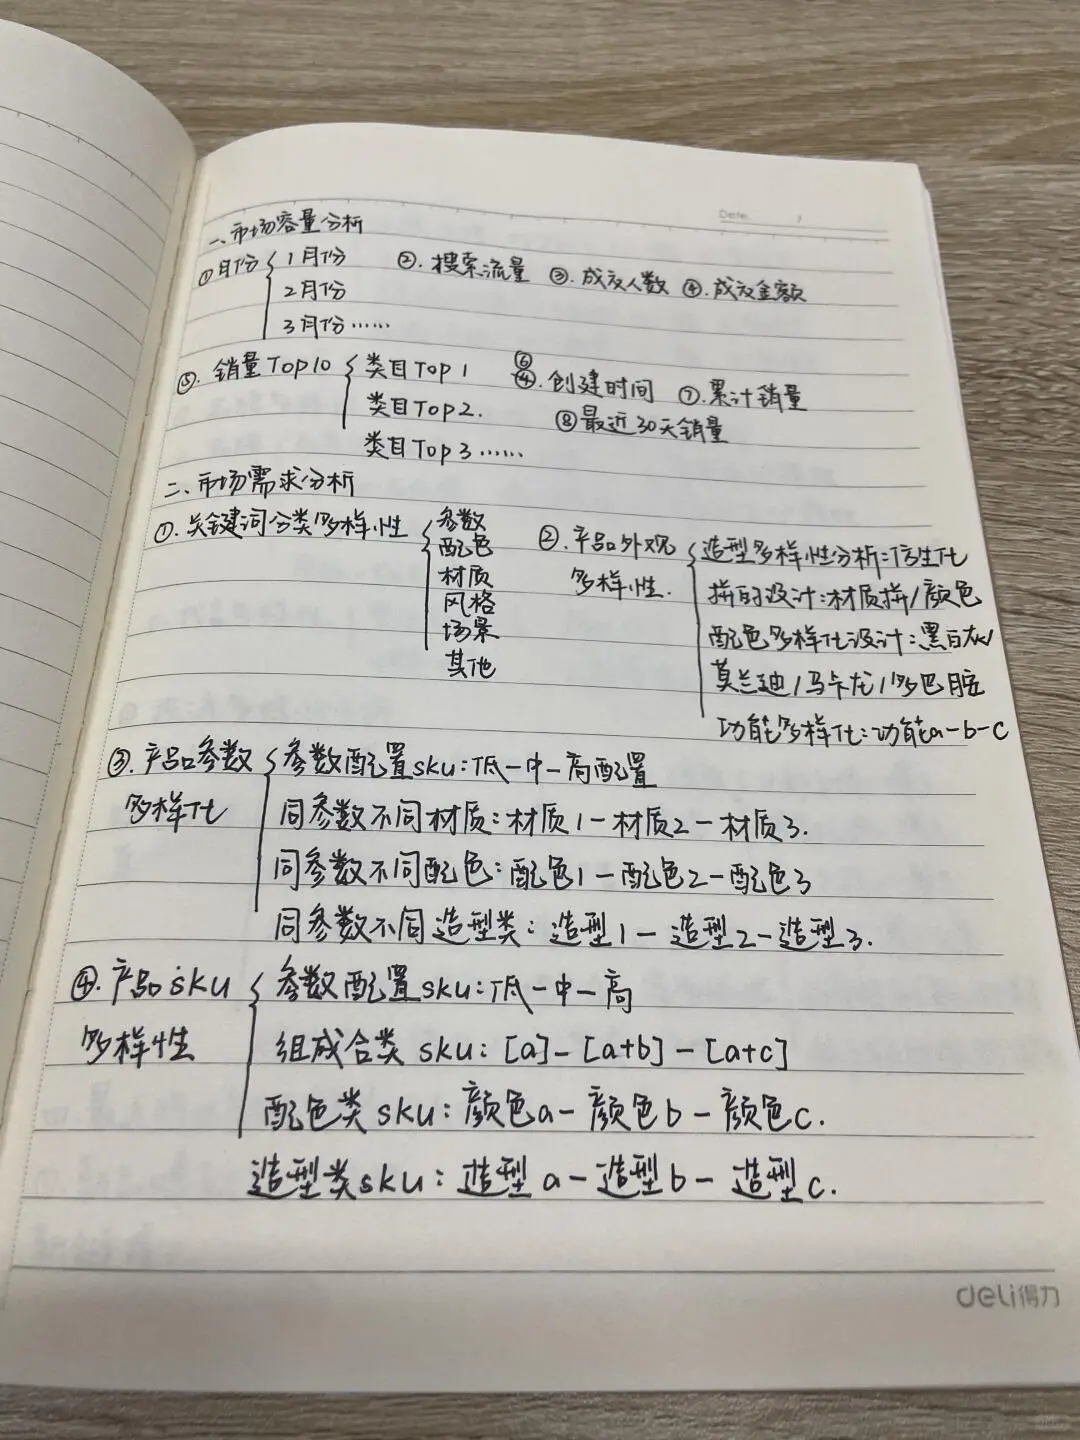 Date
一、市场容量分析
①月份 1月份 ②.搜索流量 ③.成交人数 ④.成交金额
2月份
3月份……
⑤.销量Top10 类目Top1 ⑥④.创建时间 ⑦.累计销量
类目Top2. ⑧最近30天销量
类目Top3……
二、市场需求分析
①.关键词分类多样性 参数
配色
材质
风格
场景
其他
②.产品外观 造型多样性分析:仿生化
多样性. 拼的设计:材质拼/颜色
配色多样化设计:黑白灰/
莫兰迪/马卡龙/多巴胺
功能多样化:功能a-b-c
③.产品参数 参数配置sku:低-中-高配置
多样化 同参数不同材质:材质1-材质2-材质3.
同参数不同配色:配色1-配色2-配色3
同参数不同造型类:造型1-造型2-造型3.
④.产品sku 参数配置sku:低-中-高
多样性 组成合类sku:[a]-[a+b]-[a+c]
配色类sku:颜色a-颜色b-颜色c.
造型类sku:造型a-造型b-造型c.
deli得力